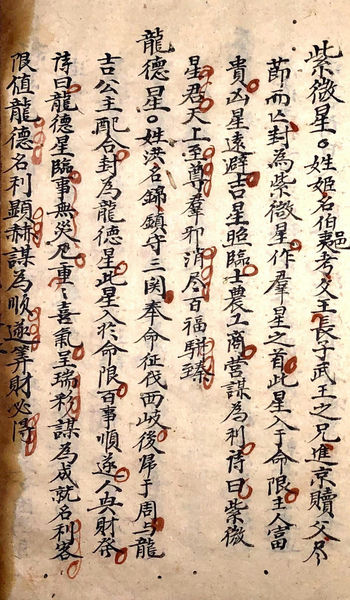 紫微星。姓姬名伯邑考文王長子武王之兄進京贖父尽
節而亡封為紫微星作羣星之首此星入于命限主人富
貴凶星遠避吉星照臨士農工商营謀為利詩曰紫微
星君天上至尊羣邪消尽百福騈臻
龍德星。姓洪名錦鎮守三関奉命征伐西岐後歸于周与龍
吉公主配合封為龍德星此星入於命限百事順遂人興財發
詩曰龍德星臨事無災尼重〻喜氣呈瑞彩謀為成就名利客
限值龍德名利顯赫謀為順遂筭財必得